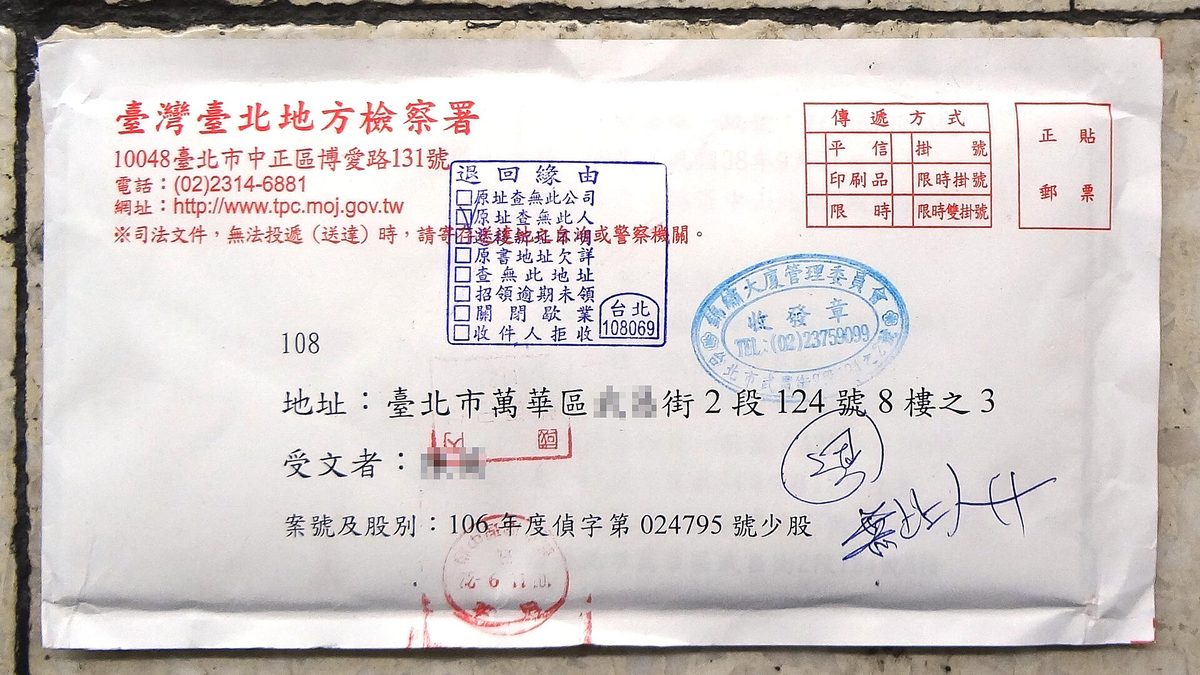 臺灣臺北地方檢察署
10048臺北市中正區博愛路131號
電話：(02)2314-6881
網址：http://www.tpc.moj.gov.tw
※司法文件，無法投遞（送達）時，請寄存送達地之自治或警察機關。
傳遞方式
平信 掛號
印刷品 限時掛號
限時 限時雙掛號
正貼
郵票
退回緣由
原址查無此公司
原址查無此人
遷移新址不明
原書地址欠詳
查無此地址
招領逾期未領
關閉歇業
收件人拒收
台北
108069
錦繡大廈管理委員會
收發章
TEL:(02)23759099
台北市武
108
地址：臺北市萬華區 街2段124號8樓之3
受文者：
案號及股別：106年度偵字第024795號少股
無此人